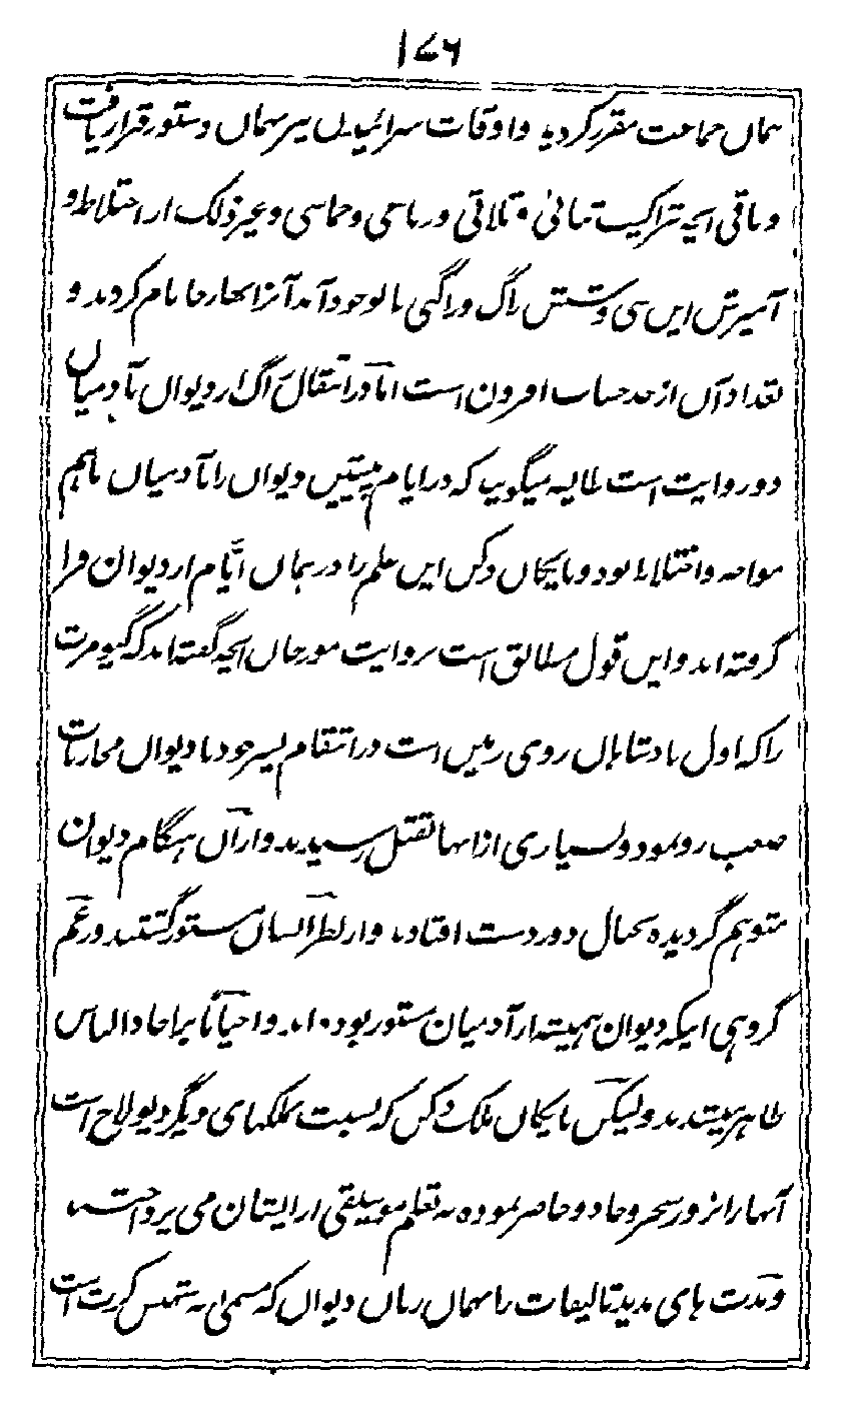 ۱۷۶
همان جماعت مقرر کردید و اوقات سرائیدن بیز بهمان دستور قرار یافت
و باقی انچه تراکیب ثنائی و ثلاثی و رباعی و خماسی و غیر ذلک از اختلاط و
آمیزش این سی و شش راگ و راگنی با بوجود آمد آنرا بهارجا نام کردند و
تعداد آن از حد حساب افزون است اما در انتقال آن از دیوان بآدمیان
دو روایت است طایفه میگویند که در ایام پیشین دیوان را با آدمیان باهم
مواجهه و اختلاط بود و نایکان دکن این علم را در همان ایام از دیوان فرا
گرفته اند و این قول مطابق است بروایت مورخان انچه گفته اند که گیومرث
را که اول پادشاهان روی زمین است در انتقام پسر خود با دیوان محاربات
صعب رو نمود و بسیاری ازانها بقتل رسیدند و ازان هنگام دیوان
متوهم گردیده بجبال دور دست افتاده و از نظر انسان مستور گشتند و زعم
گروهی اینکه دیوان همیشه از آدمیان مستور بوده اند و احیانا براحاد الناس
ظاهر میشدند ولیکن نایکان ملک دکن که نسبت بملکهای دیگر دیولاخ است
آنها را بزور سحر و جادو حاضر نموده به تعلم موسیقی از ایشان می پرداختند
و مدت های مدید تالیفات را بهمان زبان دیوان که مسمی به شهنس کرت است